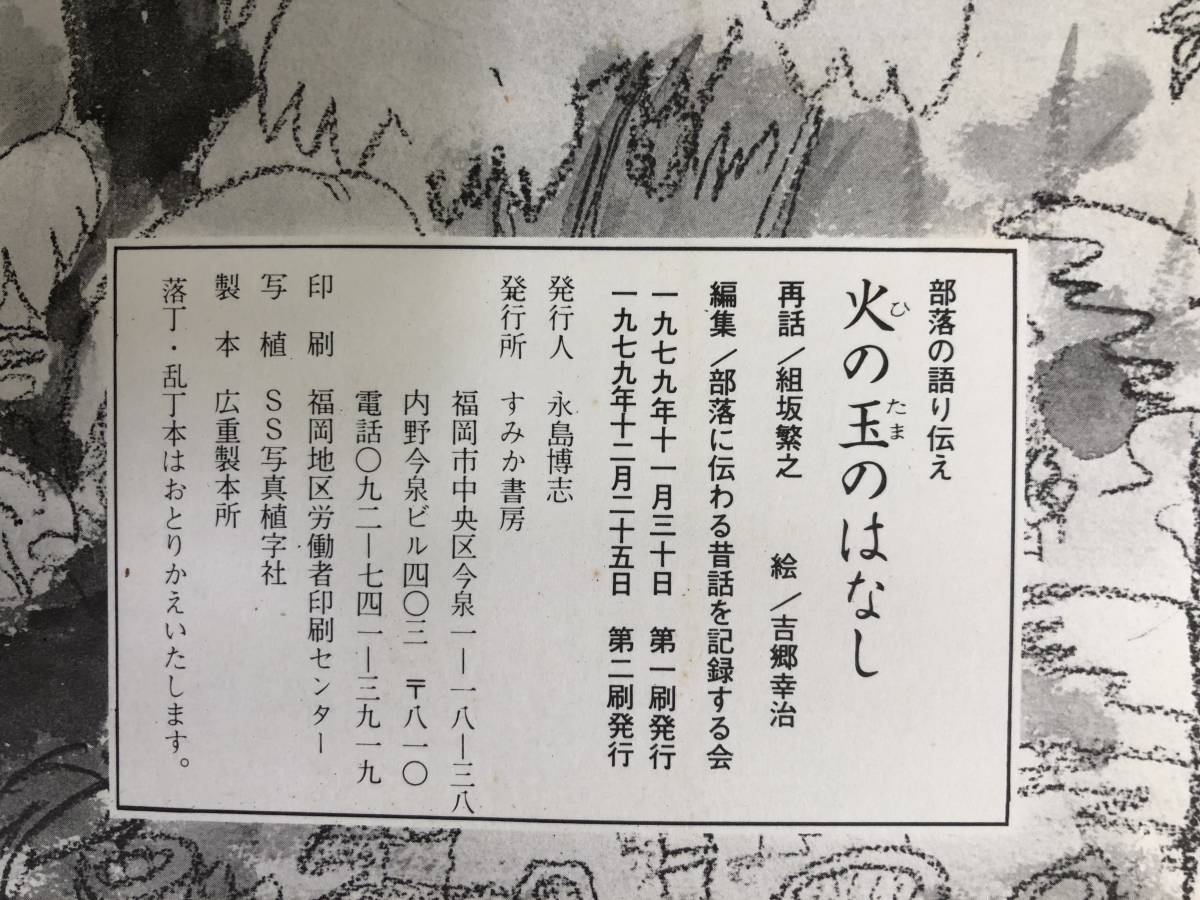 部落の語り伝え
火の玉のはなし
ひ たま
再話/組坂繁之 絵/吉郷幸治
編集/部落に伝わる昔話を記録する会
一九七九年十一月三十日 第一刷発行
一九七九年十二月二十五日 第二刷発行
発行人 永島博志
発行所 すみか書房
福岡市中央区今泉一―一八―三八
内野今泉ビル四〇三 〒八一〇
電話〇九二―七四一―三九一九
印刷 福岡地区労働者印刷センター
写植 SS写真植字社
製本 広重製本所
落丁・乱丁本はおとりかえいたします。